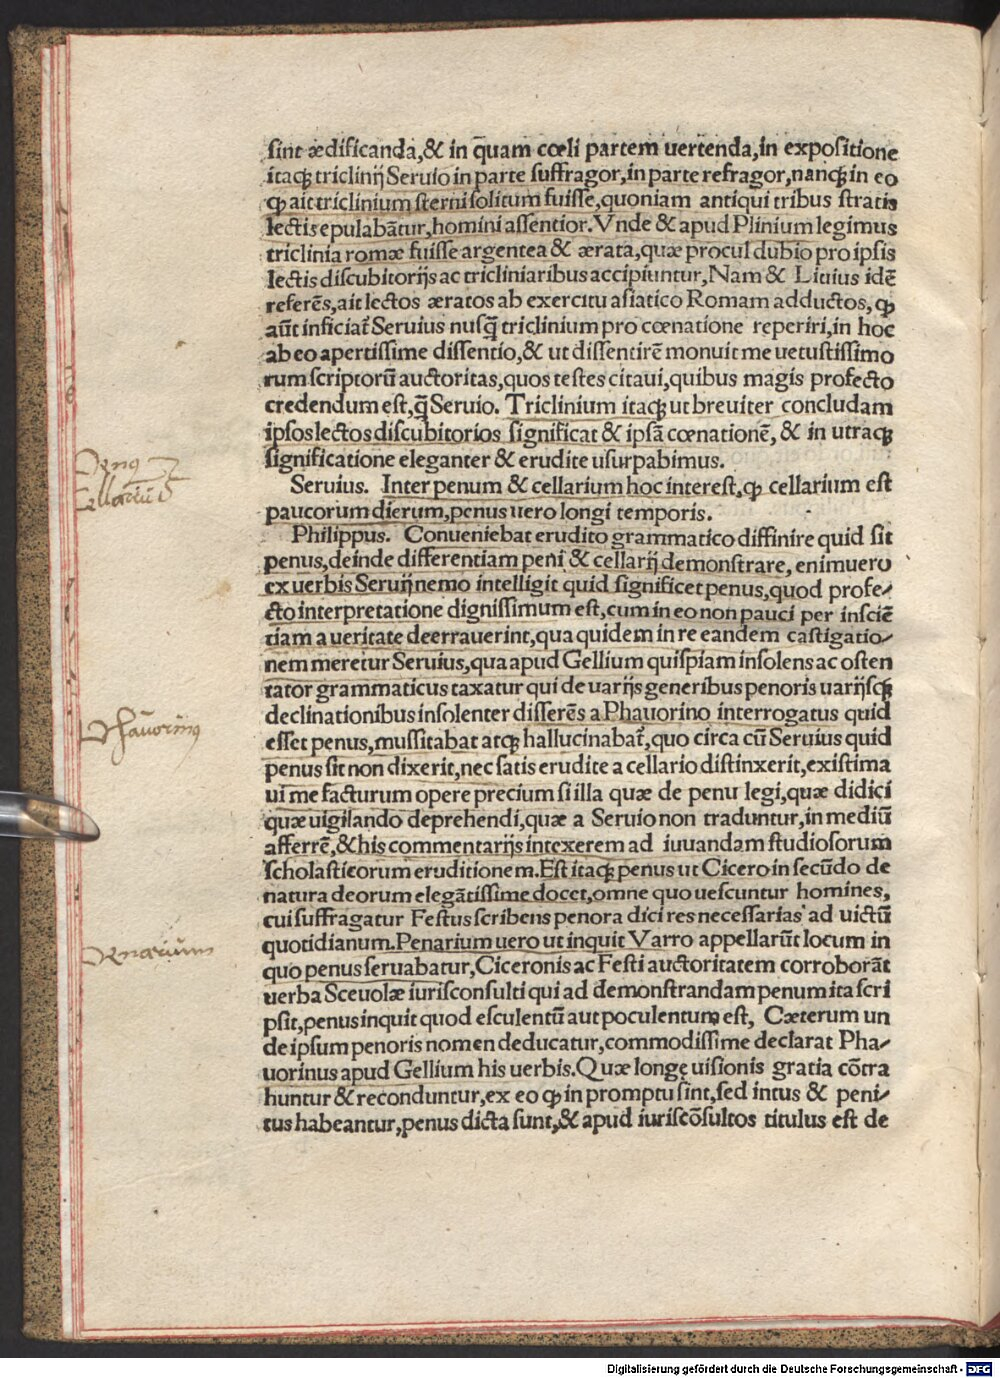 sint ædificanda,& in q̄uam cœli partem uertenda,in expositione
itaqꝫ triclinij Seruio in parte suffragor,in parte refragor,nanqꝫ in eo
ꝙ ait triclinium sterni solitum fuisse,quoniam antiqui tribus stratis
lectis epulabātur,homini assentior.Vnde & apud Plinium legimus
triclinia romæ fuisse argentea & ærata,quæ procul dubio pro ipsis
lectis discubitorijs ac tricliniaribus accipiuntur,Nam & Liuius idē
referēs,ait lectos æratos ab exercitu asiatico Romam adductos,ꝙ
aūt inficiat̄ Seruius nusq̄ triclinium pro cœnatione reperiri,in hoc
ab eo apertissime dissentio,& ut dissentirē monuit me uetustissimo
rum scriptorū auctoritas,quos testes citaui,quibus magis profecto
credendum est,q̄ Seruio. Triclinium itaqꝫ ut breuiter concludam
ipsos lectos discubitorios significat & ipsā cœnationē, & in utraqꝫ
significatione eleganter & erudite usurpabimus.
Penꝰ
Cellariū
Seruius. Inter penum & cellarium hoc interest,ꝙ cellarium est
paucorum dierum,penus uero longi temporis.
Philippus. Conueniebat erudito grammatico diffinire quid sit
penus,deinde differentiam peni & cellarij demonstrare, enimuero
ex uerbis Seruij nemo intelligit quid significet penus,quod profe⸗
cto interpretatione dignissimum est,cum in eo non pauci per insciē
tiam a ueritate deerrauerint,qua quidem in re eandem castigatio⸗
nem meretur Seruius,qua apud Gellium quispiam insolens ac osten
tator grammaticus taxatur qui de uarijs generibus penoris uarijsqꝫ
declinationibus insolenter disserēs a Phauorino interrogatus quid
esset penus,mussitabat atqꝫ hallucinabat̄,quo circa cū Seruius quid
Phauorinus
penus sit non dixerit,nec satis erudite a cellario distinxerit,existima
ui me facturum opere precium si illa quæ de penu legi,quæ didici
quæ uigilando deprehendi,quæ a Seruio non traduntur,in mediū
afferrē,& his commentarijs intexerem ad iuuandam studiosorum
scholasticorum eruditionem.Est itaqꝫ penus ut Cicero in secūdo de
natura deorum elegātissime docet,omne quo uescuntur homines,
cui suffragatur Festus scribens penora dici res necessarias ad uictū
quotidianum.Penarium uero ut inquit Varro appellarūt locum in
Penarium
quo penus seruabatur,Ciceronis ac Festi auctoritatem corroborāt
uerba Sceuolæ iurisconsulti qui ad demonstrandam penum ita scri
psit,penus inquit quod esculentū aut poculentum est, Cæterum un
de ipsum penoris nomen deducatur,commodissime declarat Pha⸗
uorinus apud Gellium his uerbis.Quæ longę uisionis gratia cōtra
huntur & reconduntur,ex eo ꝙ in promptu sint,sed intus & peni⸗
tus habeantur,penus dicta sunt,& apud iuriscōsultos titulus est de
Digitalisierung gefördert durch die Deutsche Forschungsgemeinschaft - DFG